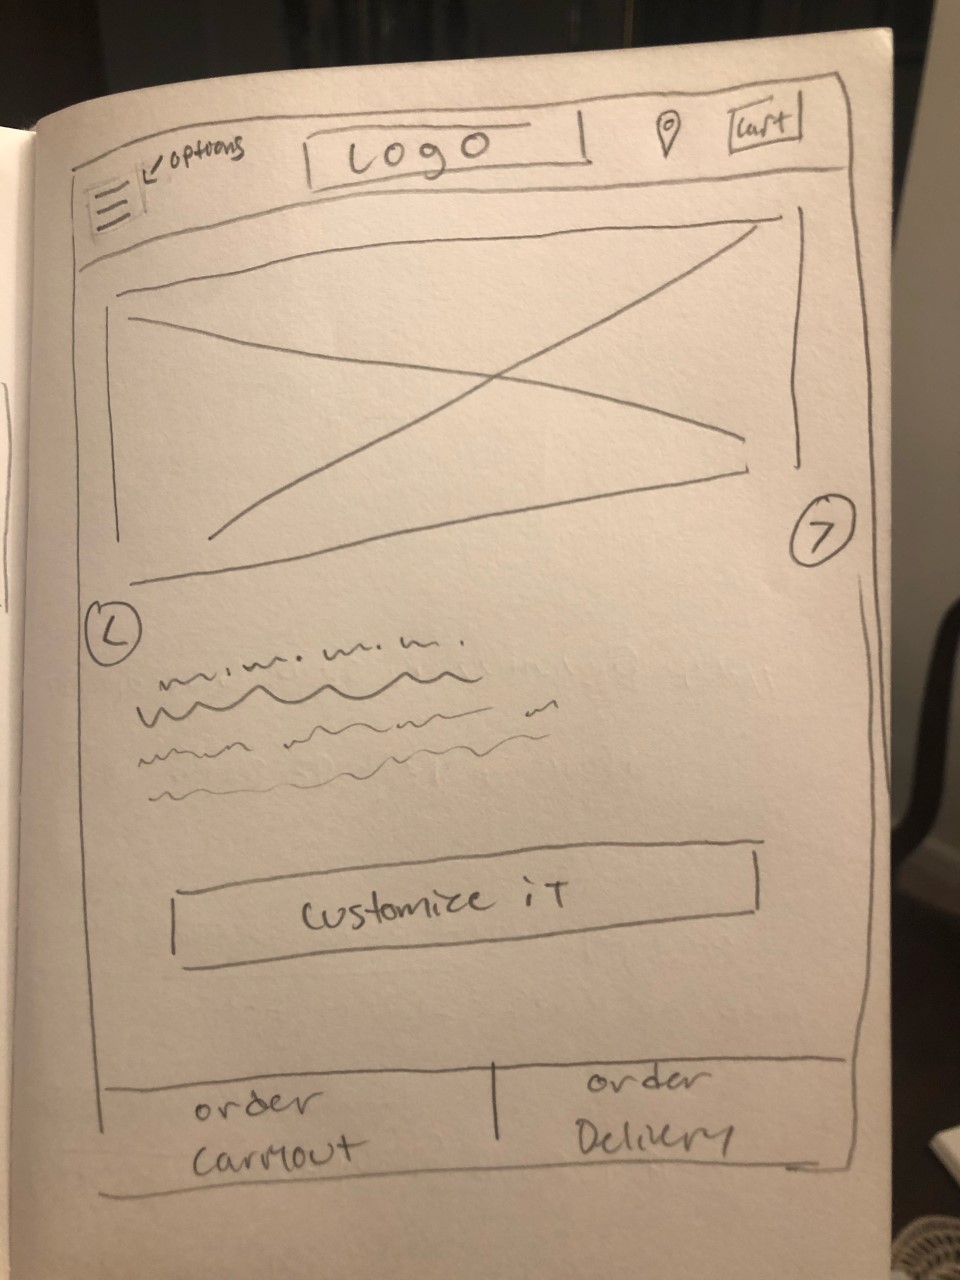 options
Logo
Cart
<
>
Customize it
order
Carryout
order
Delivery